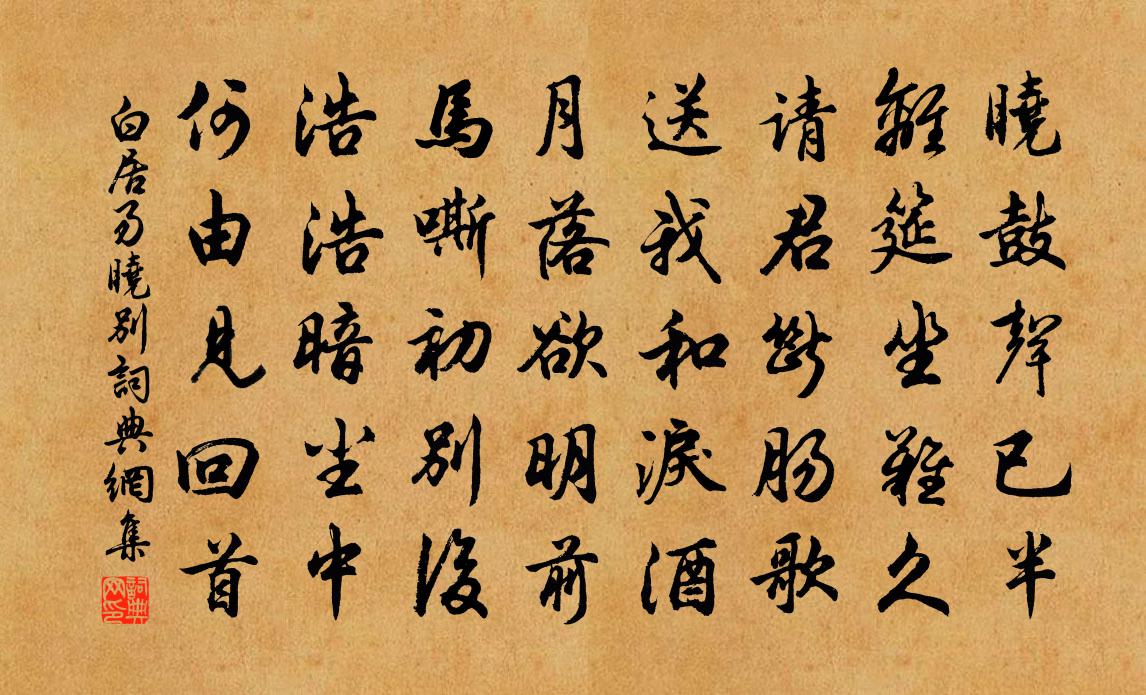 曉鼓聲已半
離筵坐難久
请君斷肠歌
送我和淚酒
月落欲明前
馬嘶初別後
浩浩暗尘中
何由見回首
白居易曉別詞典網集
詞典网印